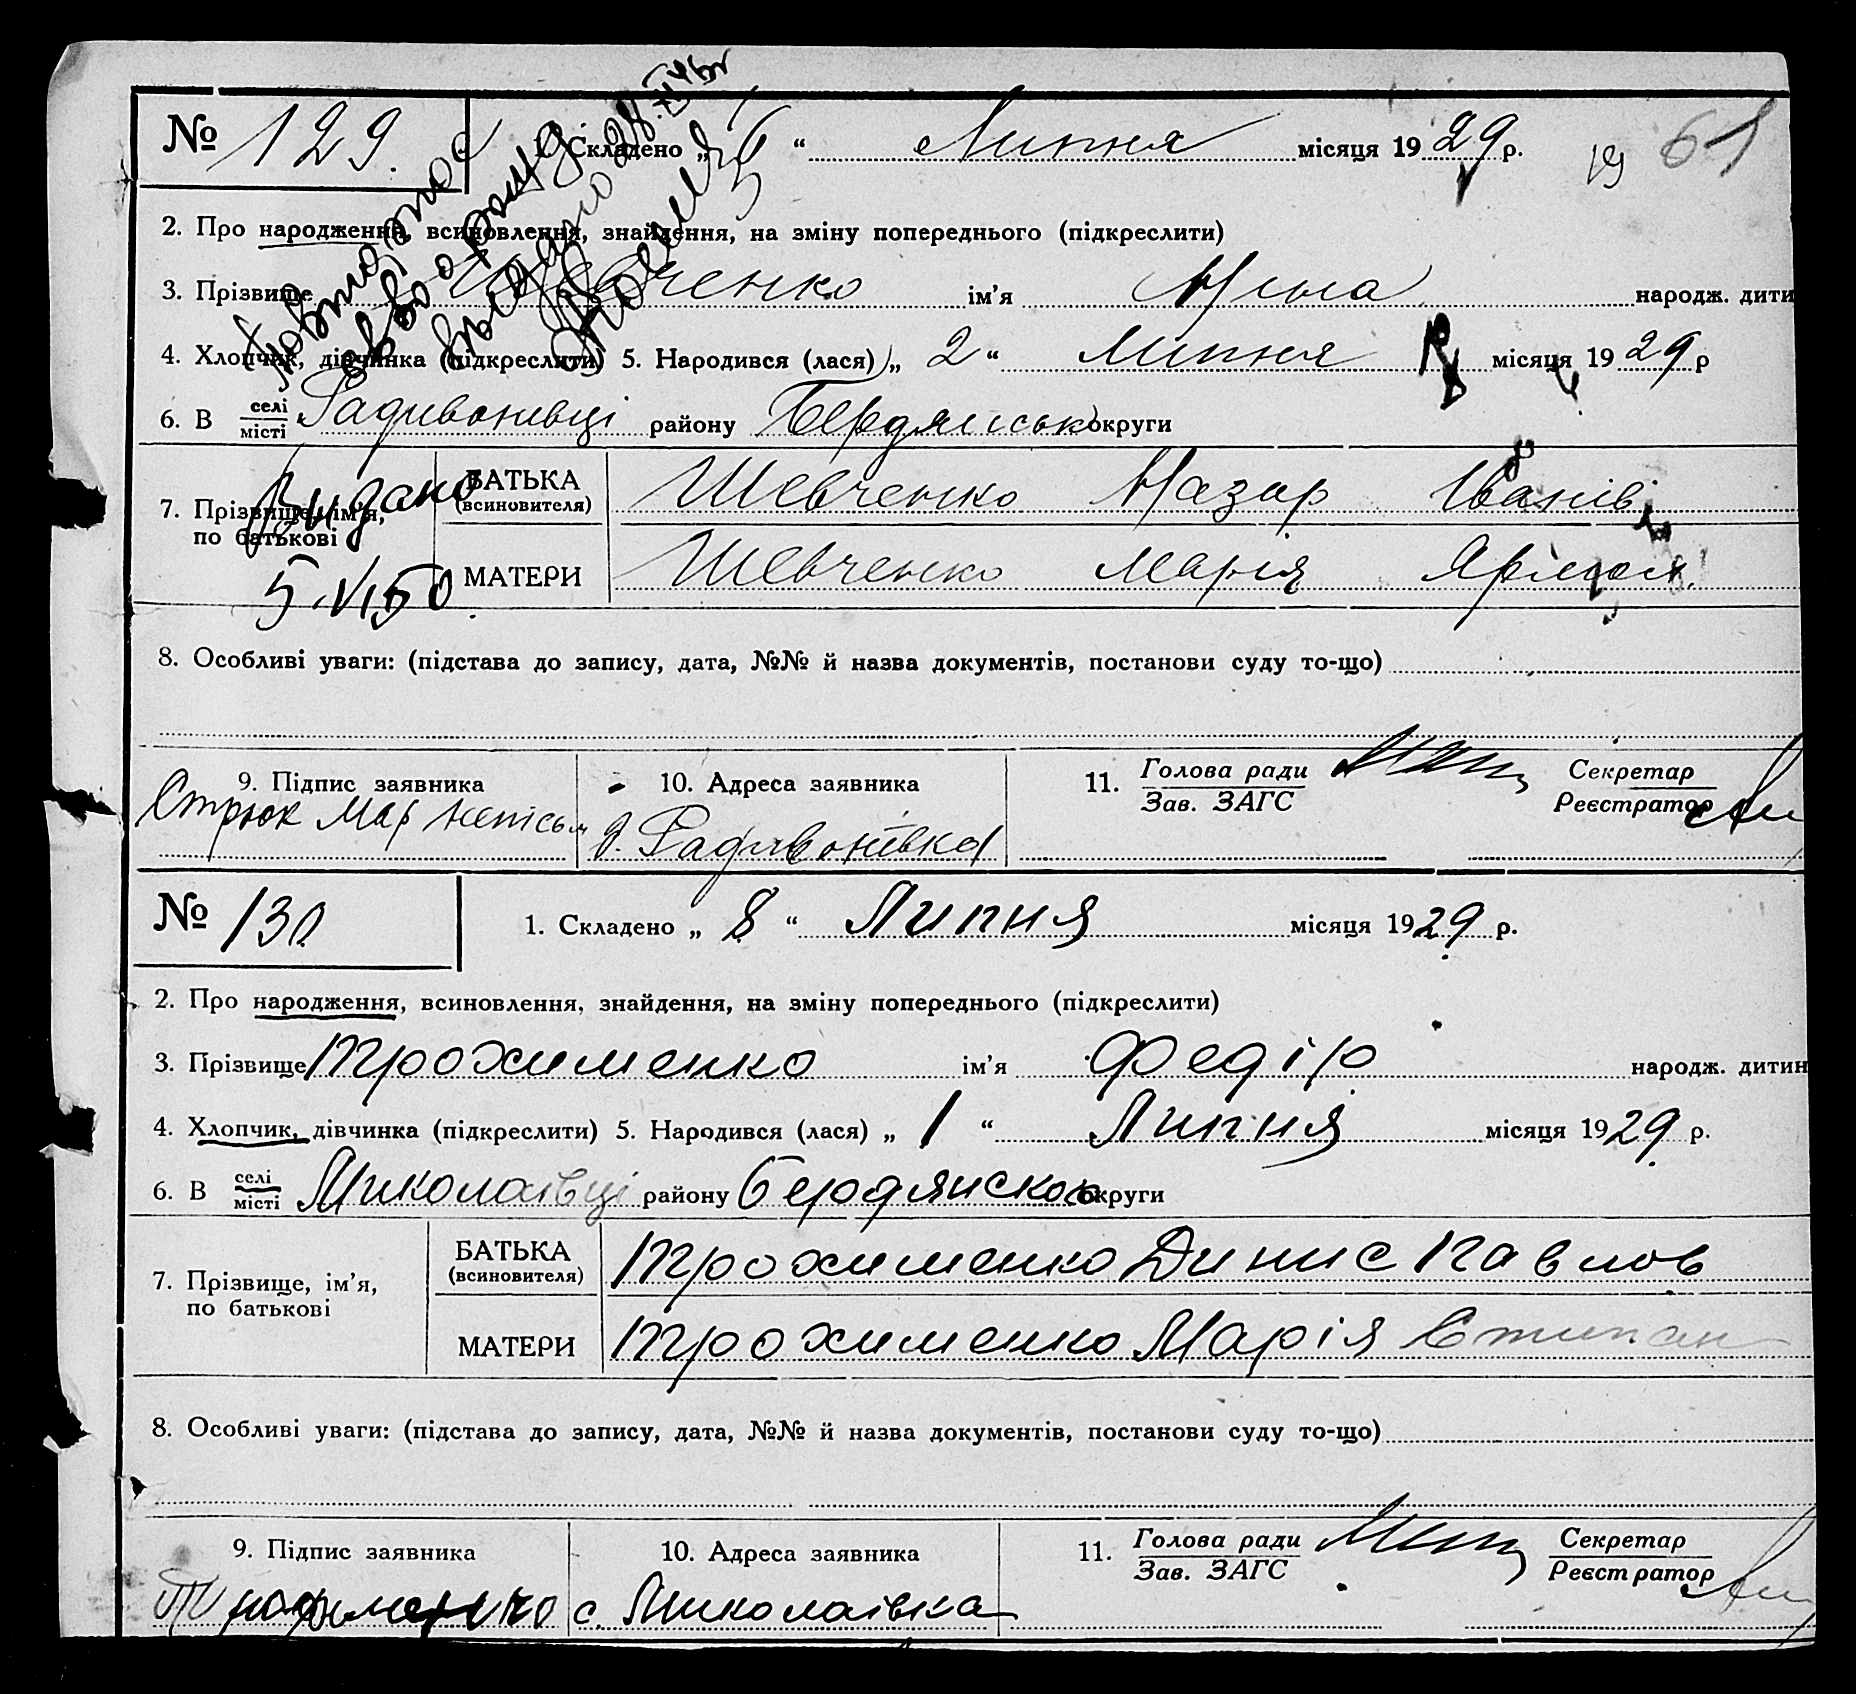 № 129.
1. Складено „ 5 “ Липня місяця 1929 р. 61
2. Про народження, всиновлення, знайдення, на зміну попереднього (підкреслити)
3. Прізвище Шевченко ім'я народж. дити
4. Хлопчик, дівчинка (підкреслити) 5. Народився (лася) „ 2 “ Липня місяця 1929 р
6. В селі/місті Радивонівці району Бердянськ округи
Повторное
св-во о рожд
выдано 28.XI 45г
Видано
5.VI.50.
7. Прізвище, ім'я, по батькові
БАТЬКА (всиновителя) Шевченко Назар Іванів
МАТЕРИ Шевченко Марія
8. Особливі уваги: (підстава до запису, дата, №№ й назва документів, постанови суду то-що)
9. Підпис заявника 10. Адреса заявника 11. Голова ради/Зав. ЗАГС Секретар/Реєстратор
Стрюк Мар непісьм с. Радивонівка
№ 130
1. Складено „ 8 “ Липня місяця 1929 р.
2. Про народження, всиновлення, знайдення, на зміну попереднього (підкреслити)
3. Прізвище Трохименко ім'я Федір народж. дитин
4. Хлопчик, дівчинка (підкреслити) 5. Народився (лася) „ 1 “ Липня місяця 1929 р.
6. В селі/місті Миколаівці району Бердянской округи
7. Прізвище, ім'я, по батькові
БАТЬКА (всиновителя) Трохименко Динис Павлов
МАТЕРИ Трохименко Марія Стипан
8. Особливі уваги: (підстава до запису, дата, №№ й назва документів, постанови суду то-що)
9. Підпис заявника 10. Адреса заявника 11. Голова ради/Зав. ЗАГС Секретар/Реєстратор
с. Миколаівка